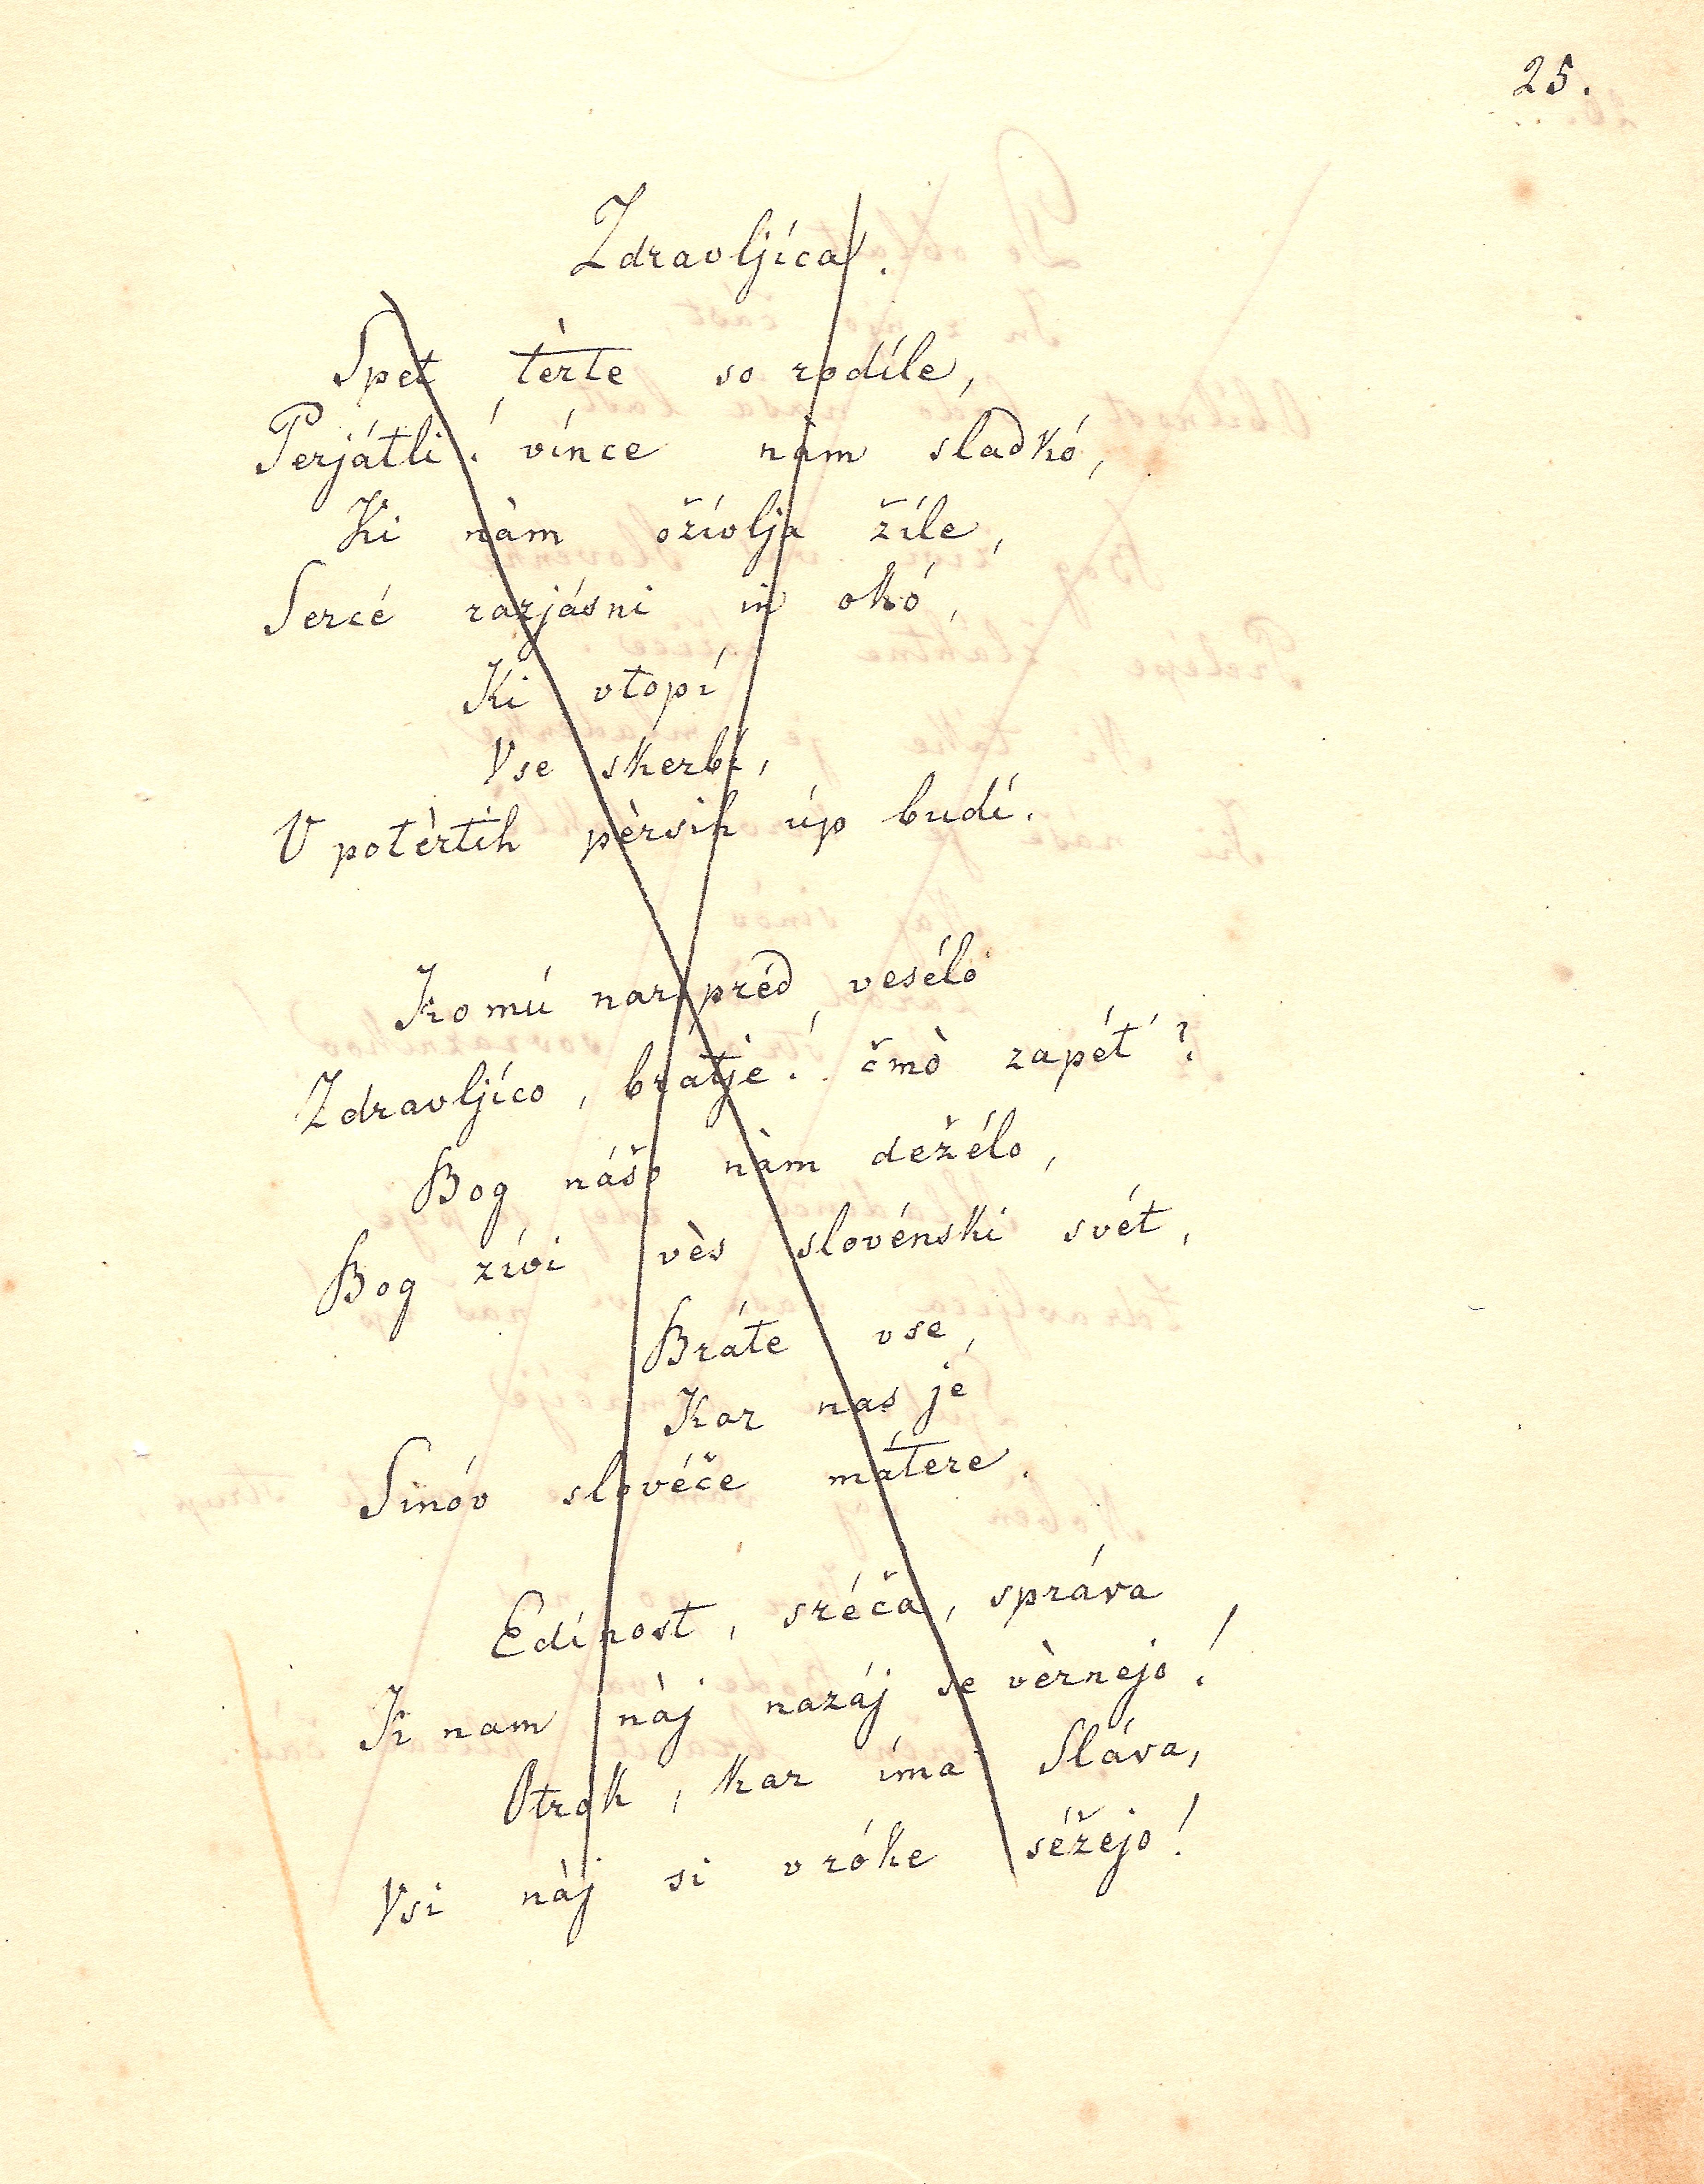 25.
Zdravljíca.
Spet tèrte so rodíle,
Perjátli! vínce nàm sladkó,
Ki nàm ožívlja žíle,
Sercé razjásni in okó,
Ki vtopí
Vse skerbí,
V potèrtih pèrsih úp budí.
Komú narpréd veselo
Zdravljíco, bratje! čmò zapét'?
Bog nášo nàm deželo,
Bog zívi vès slovénski svét,
Bráte vse,
Kar nas je
Sinóv slovéče mátere.
Edínost, sréča, správa
K nam nàj nazáj se vèrnejo!
Otrok, kar íma Sláva,
Vsi nàj si v róke séžejo!